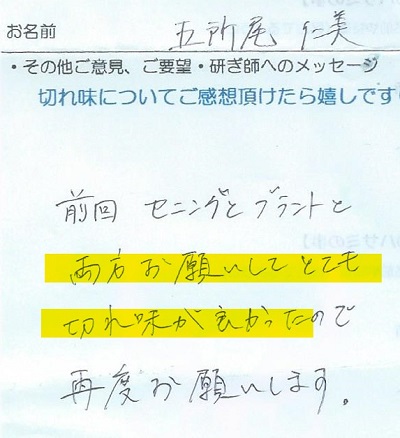 お名前 五所尾 仁美
・その他ご意見、ご要望・研ぎ師へのメッセージ
切れ味についてご感想頂けたら嬉しです
前回 セニングとブラントと
両方お願いしてとても
切れ味が良かったので
再度お願いします。